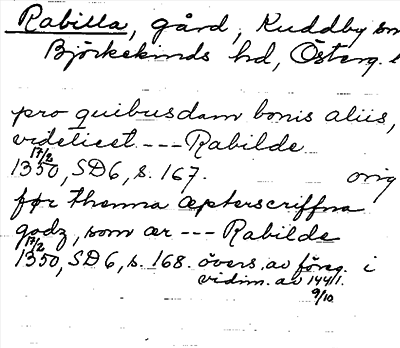 Rabilla, gård, Kuddby sn
Björkekinds hd, Österg. l
pro quibusdam bonis aliis,
videlicet --- Rabilde
17/2
1350, SD6, s. 167. orig
før thenna æpterscriffna
godz, som ær --- Rabilde
17/2
1350, SD6, s. 168. övers. av föreg. i
vidim. av 1441.
9/10